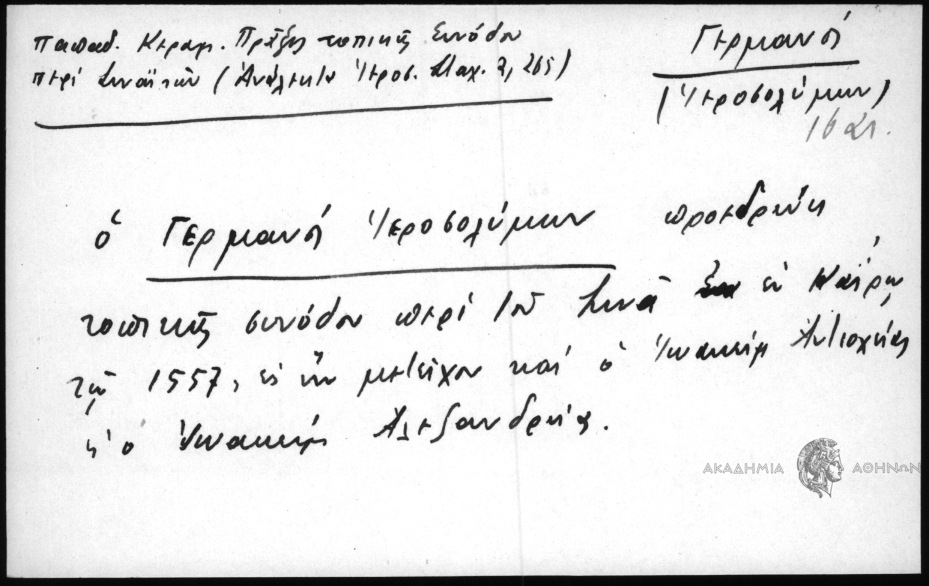 Παπαδ. Κεραμ. Πρᾶξις τοπικῆς Συνόδου
περί Σιναϊτῶν (Ἀνάλεκτα Ἱεροσ. Σταχ. 2, 265)
Γερμανός
(Ἱεροσολύμων)
16 21.
ὁ Γερμανός Ἱεροσολύμων προεδρεύει
τοπικῆς συνόδου περί τοῦ Σινᾶ ἐν Καΐρῳ
τῷ 1557, εἰς ἥν μετεῖχον καί ὁ Ἰωακείμ Ἀντιοχείας
κ ὁ Ἰωακείμ Ἀλεξανδρείας.
ΑΚΑΔΗΜΙΑ ΑΘΗΝΩΝ